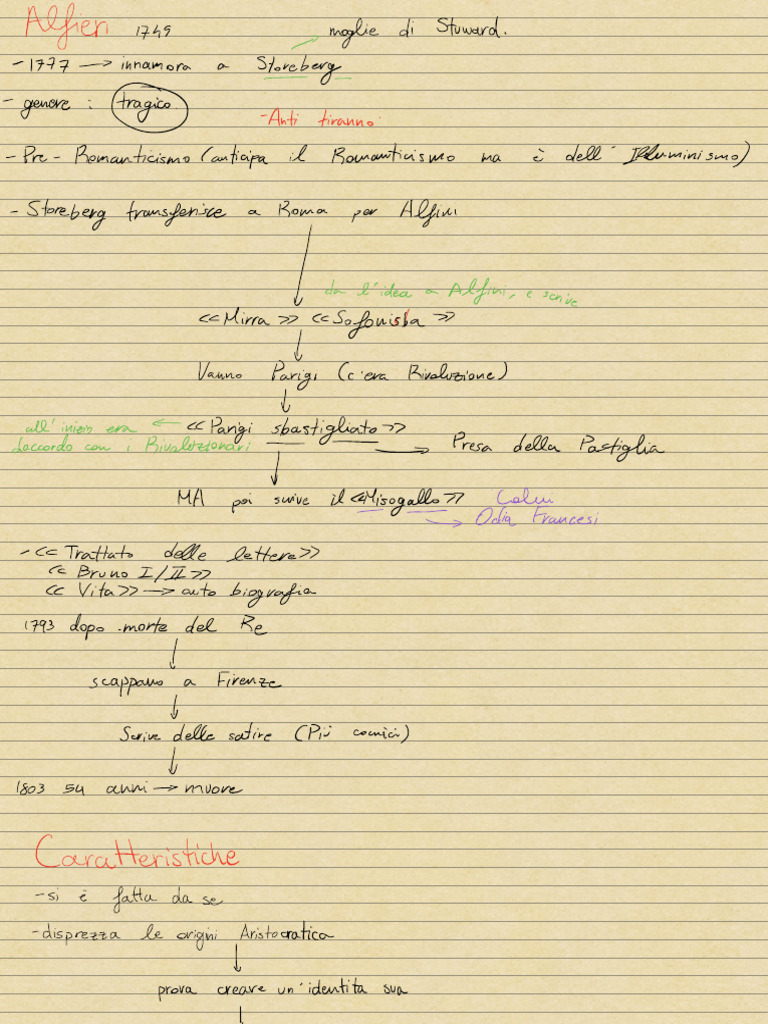 Alfieri 1749
moglie di Stuward.
- 1777 → innamora a Storeberg
- genere : tragico
- Anti tiranno
- Pre - Romanticismo (anticipa il Romanticismo ma è dell' Illuminismo)
- Storeberg transferisce a Roma per Alfini
da l'idea a Alfini, e scrive
<<Mirra>> <<Sofonisba>>
Vanno Parigi (c'era Rivoluzione)
all'inizio era ← <<Parigi sbastigliato>>
daccordo con i Rivoluzionari
→ Presa della Pastiglia
MA poi scrive il <<Misogallo>> Colui
→ Odia Francesi
- << Trattato delle lettere>>
<< Bruno I/II >>
<< Vita>> → auto biografia
1793 dopo morte del Re
scappano a Firenze
Scrive delle satire (Più comici)
1803 54 anni → muore
Caratteristiche
- si è fatta da se
- disprezza le origini Aristocratica
prova creare un'identita sua